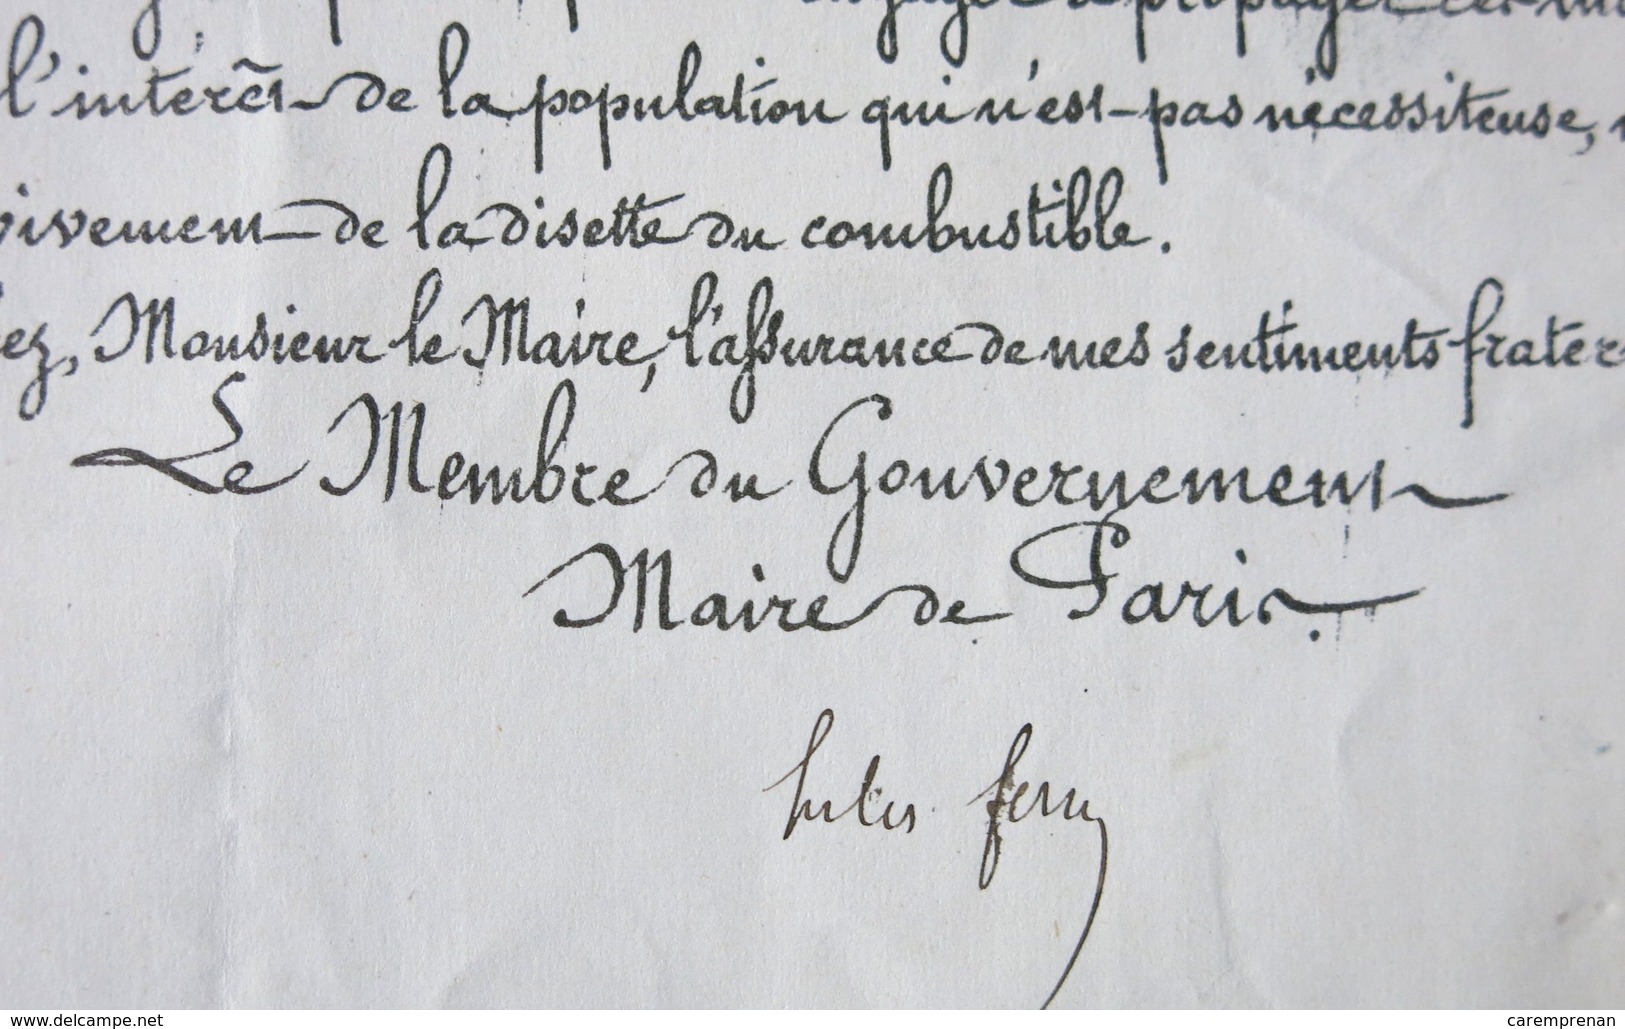 engager à propager ces
l'intérêt de la population qui n'est pas nécessiteuse,
vivement de la disette du combustible.
ez, Monsieur le Maire, l'assurance de mes sentiments frater
Le Membre du Gouvernement
Maire de Paris.
Jules Ferry
www.delcampe.net
caremprenan